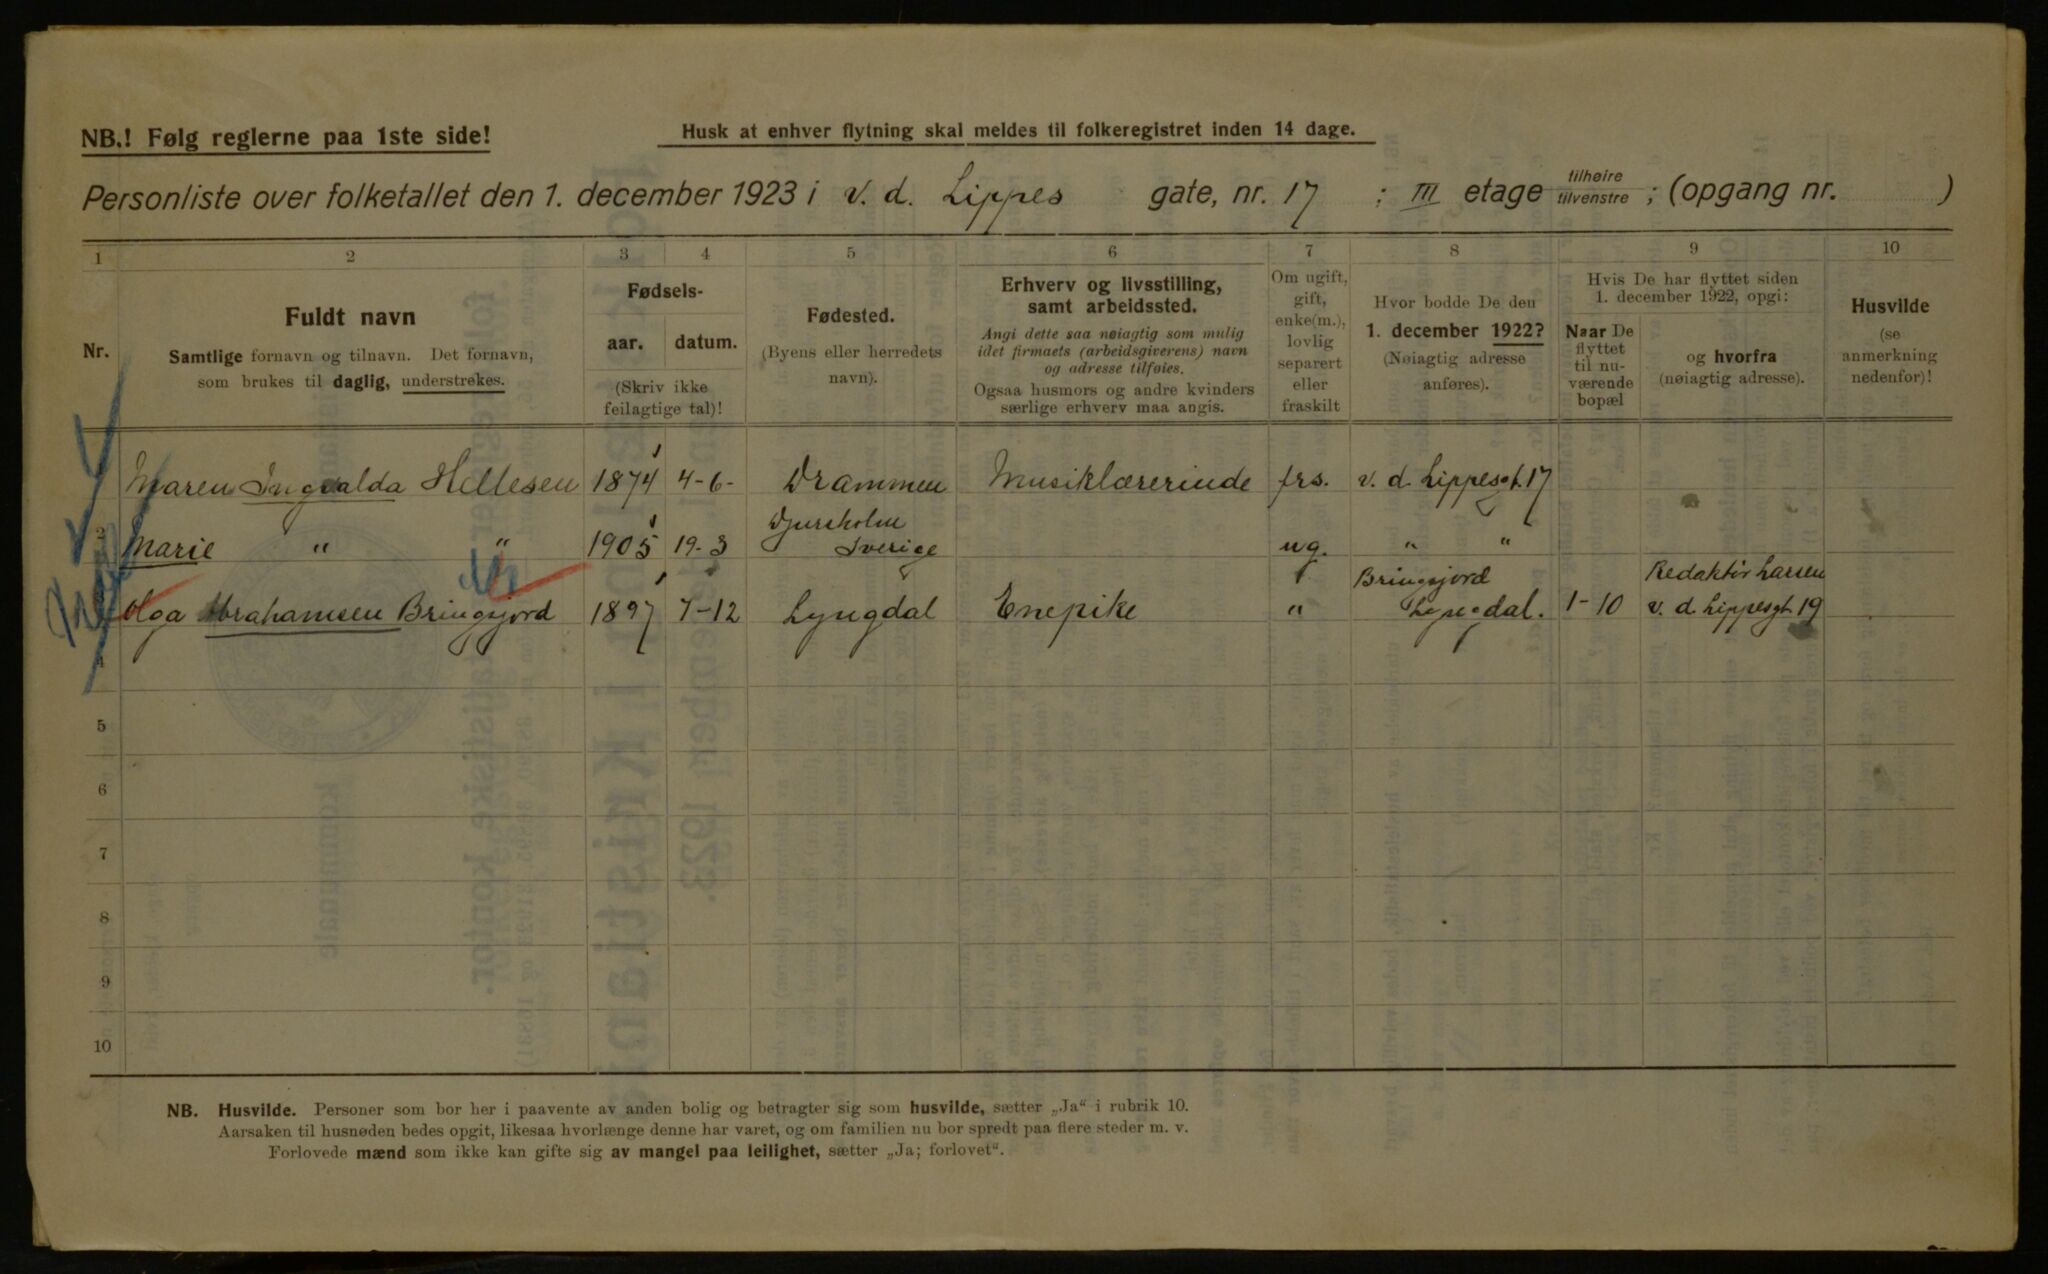 NB.! Følg reglerne paa 1ste side!
Husk at enhver flytning skal meldes til folkeregistret inden 14 dage.
Personliste over folketallet den 1. december 1923 i v. d. Lippes gate, nr. 17 ; III etage tilhøire tilvenstre ; (opgang nr. )
1 2 3 4 5 6 7 8 9 10
Nr.
Fuldt navn
Samtlige fornavn og tilnavn. Det fornavn,
som brukes til daglig, understrekes.
Fødsels-
aar. datum.
(Skriv ikke
feilagtige tal)!
Fødested.
(Byens eller herredets
navn).
Erhverv og livsstilling,
samt arbeidssted.
Angi dette saa nøiagtig som mulig
idet firmaets (arbeidsgiverens) navn
og adresse tilføies.
Ogsaa husmors og andre kvinders
særlige erhverv maa angis.
Om ugift,
gift,
enke(m.),
lovlig
separert
eller
fraskilt
Hvor bodde De den
1. december 1922?
(Nøiagtig adresse
anføres).
Hvis De har flyttet siden
1. december 1922, opgi:
Naar De
flyttet
til nu-
værende
bopæl
og hvorfra
(nøiagtig adresse).
Husvilde
(se
anmerkning
nedenfor)!
Maren Ingvalda Hellesen 1874 4-6- Drammen Musiklærerinde frs. v. d. Lippesgt. 17
2 Marie " " 1905 19-3 Djursholm Sverige ug. " "
Olga Abrahamsen Bringsjord 1897 7-12 Lyngdal Enepike " Bringsjord Lyngdal. 1-10 Redaktør Larsen v. d. Lippesgt. 19
4
5
6
7
8
9
10
NB. Husvilde. Personer som bor her i paavente av anden bolig og betragter sig som husvilde, sætter „Ja“ i rubrik 10.
Aarsaken til husnøden bedes opgit, likesaa hvorlænge denne har varet, og om familien nu bor spredt paa flere steder m. v.
Forlovede mænd som ikke kan gifte sig av mangel paa leilighet, sætter „Ja; forlovet“.